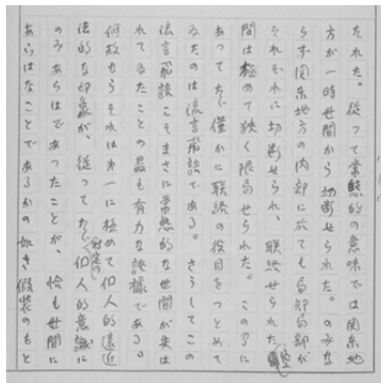 たれた。従つて常態的の意味では関東地
方が一時世間から切断せられた。のみな
らず関東地方の内部に於ても局部局部が
それぞれに切断せられ、聯絡せられた空
間は極めて狭く限局せられた。この間に
あつてたゞ僅かに聯絡の役目をつとめて
ゐたのは流言飛語である。さうしてこの
流言飛語こそまさに常態的な世間が失は
れてゐたことの最も有力な證據である。
何故ならそれは第一に極めて個人的遠近
法的な印象が、従つてたゞ特定の個人的意識に
のみあらはであつたことが、恰も世間に
あらはなことであるかの如き假装のもと